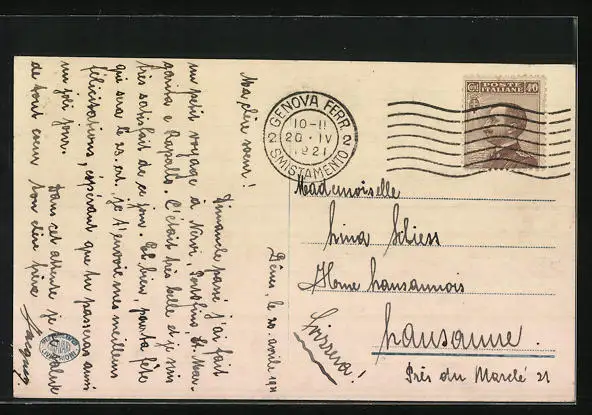 Gênes, le 20 avril 1921
Ma chère soeur!
Dimanche passé j'ai fait
un petit voyage à Nervi, Portofino, St. Mar-
garita e Rapallo. C'était très belle et je suis
très satisfait de ce jour. Eh bien, pour ta fête
qui sera le 22. crt. je t'envoie mes meilleurs
félicitations, espérant que tu passeras aussi
un joli jour. Dans cet attente je te salue
de tout coeur ton cher frère
GENOVA FERR.
10-11
20·IV
1921
2 2
SMISTAMENTO
POSTE
ITALIANE
40
Mademoiselle
Lina
Home Lausannois
Lausanne.
Près du Marché 21
Svizzera!